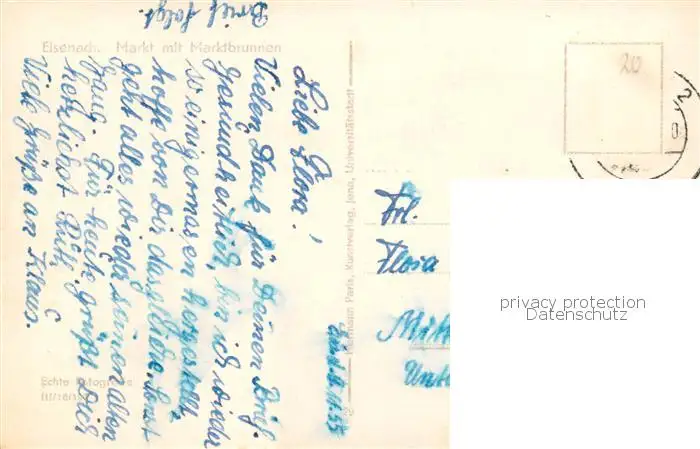 Brief folgt.
Eisenach. Markt mit Marktbrunnen
Liebe Flora!
Vielen Dank für Deinen Brief.
Gesundheitlich bin ich wieder
so einigermasen hergestellt,
hoffe von Dir dasgleiche. Sonst
geht alles wieder seinen alten
Gang. Für heute grüßt Dich
herzlichst Ruth
Viele Grüße an Klaus.
Echte Fotografie
Hermann Paris, Kunstverlag, Jena, Universitätsstadt
20
Frl.
Flora
privacy protection
Datenschutz